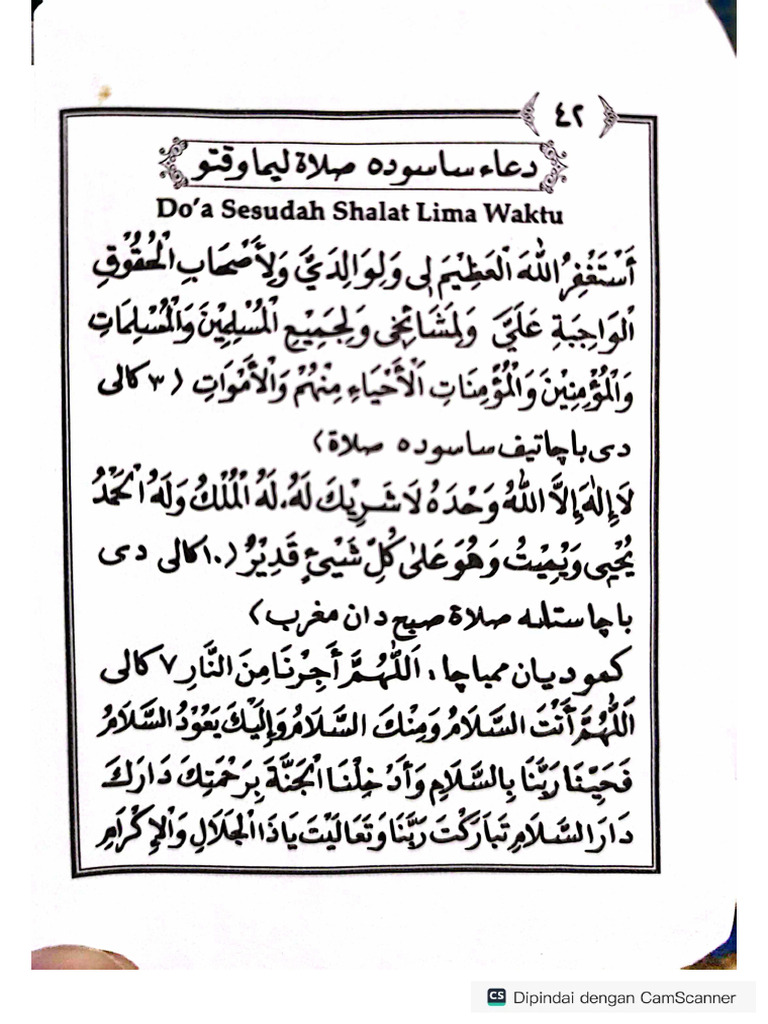 ٤٢
دعاء ساسوده صلاة ليما وقتو
Do'a Sesudah Shalat Lima Waktu
أَسْتَغْفِرُ اللهَ الْعَظِيْمَ لِى وَلِوَالِدَيَّ وَلِأَصْحَابِ الْحُقُوْقِ
الْوَاجِبَةِ عَلَيَّ وَلِمَشَائِخِى وَلِجَمِيْعِ الْمُسْلِمِيْنَ وَالْمُسْلِمَاتِ
وَالْمُؤْمِنِيْنَ وَالْمُؤْمِنَاتِ الْأَحْيَاءِ مِنْهُمْ وَالْأَمْوَاتِ (٣ كالى
دى باچا تيف ساسوده صلاة)
لَا إِلٰهَ إِلَّا اللهُ وَحْدَهُ لَا شَرِيْكَ لَهُ، لَهُ الْمُلْكُ وَلَهُ الْحَمْدُ
يُحْيِى وَيُمِيْتُ وَهُوَ عَلٰى كُلِّ شَيْئٍ قَدِيْرٌ (١٠ كالى دى
باچا ستله صلاة صبح دان مغرب)
كموديان ممباچا : اَللّٰهُمَّ أَجِرْنَا مِنَ النَّارِ ٧ كالى
اَللّٰهُمَّ أَنْتَ السَّلَامُ وَمِنْكَ السَّلَامُ وَإِلَيْكَ يَعُوْدُ السَّلَامُ
فَحَيِّنَا رَبَّنَا بِالسَّلَامِ وَأَدْخِلْنَا الْجَنَّةَ بِرَحْمَتِكَ دَارَكَ
دَارَ السَّلَامِ تَبَارَكْتَ رَبَّنَا وَتَعَالَيْتَ يَاذَا الْجَلَالِ وَالْإِكْرَامِ
CS Dipindai dengan CamScanner